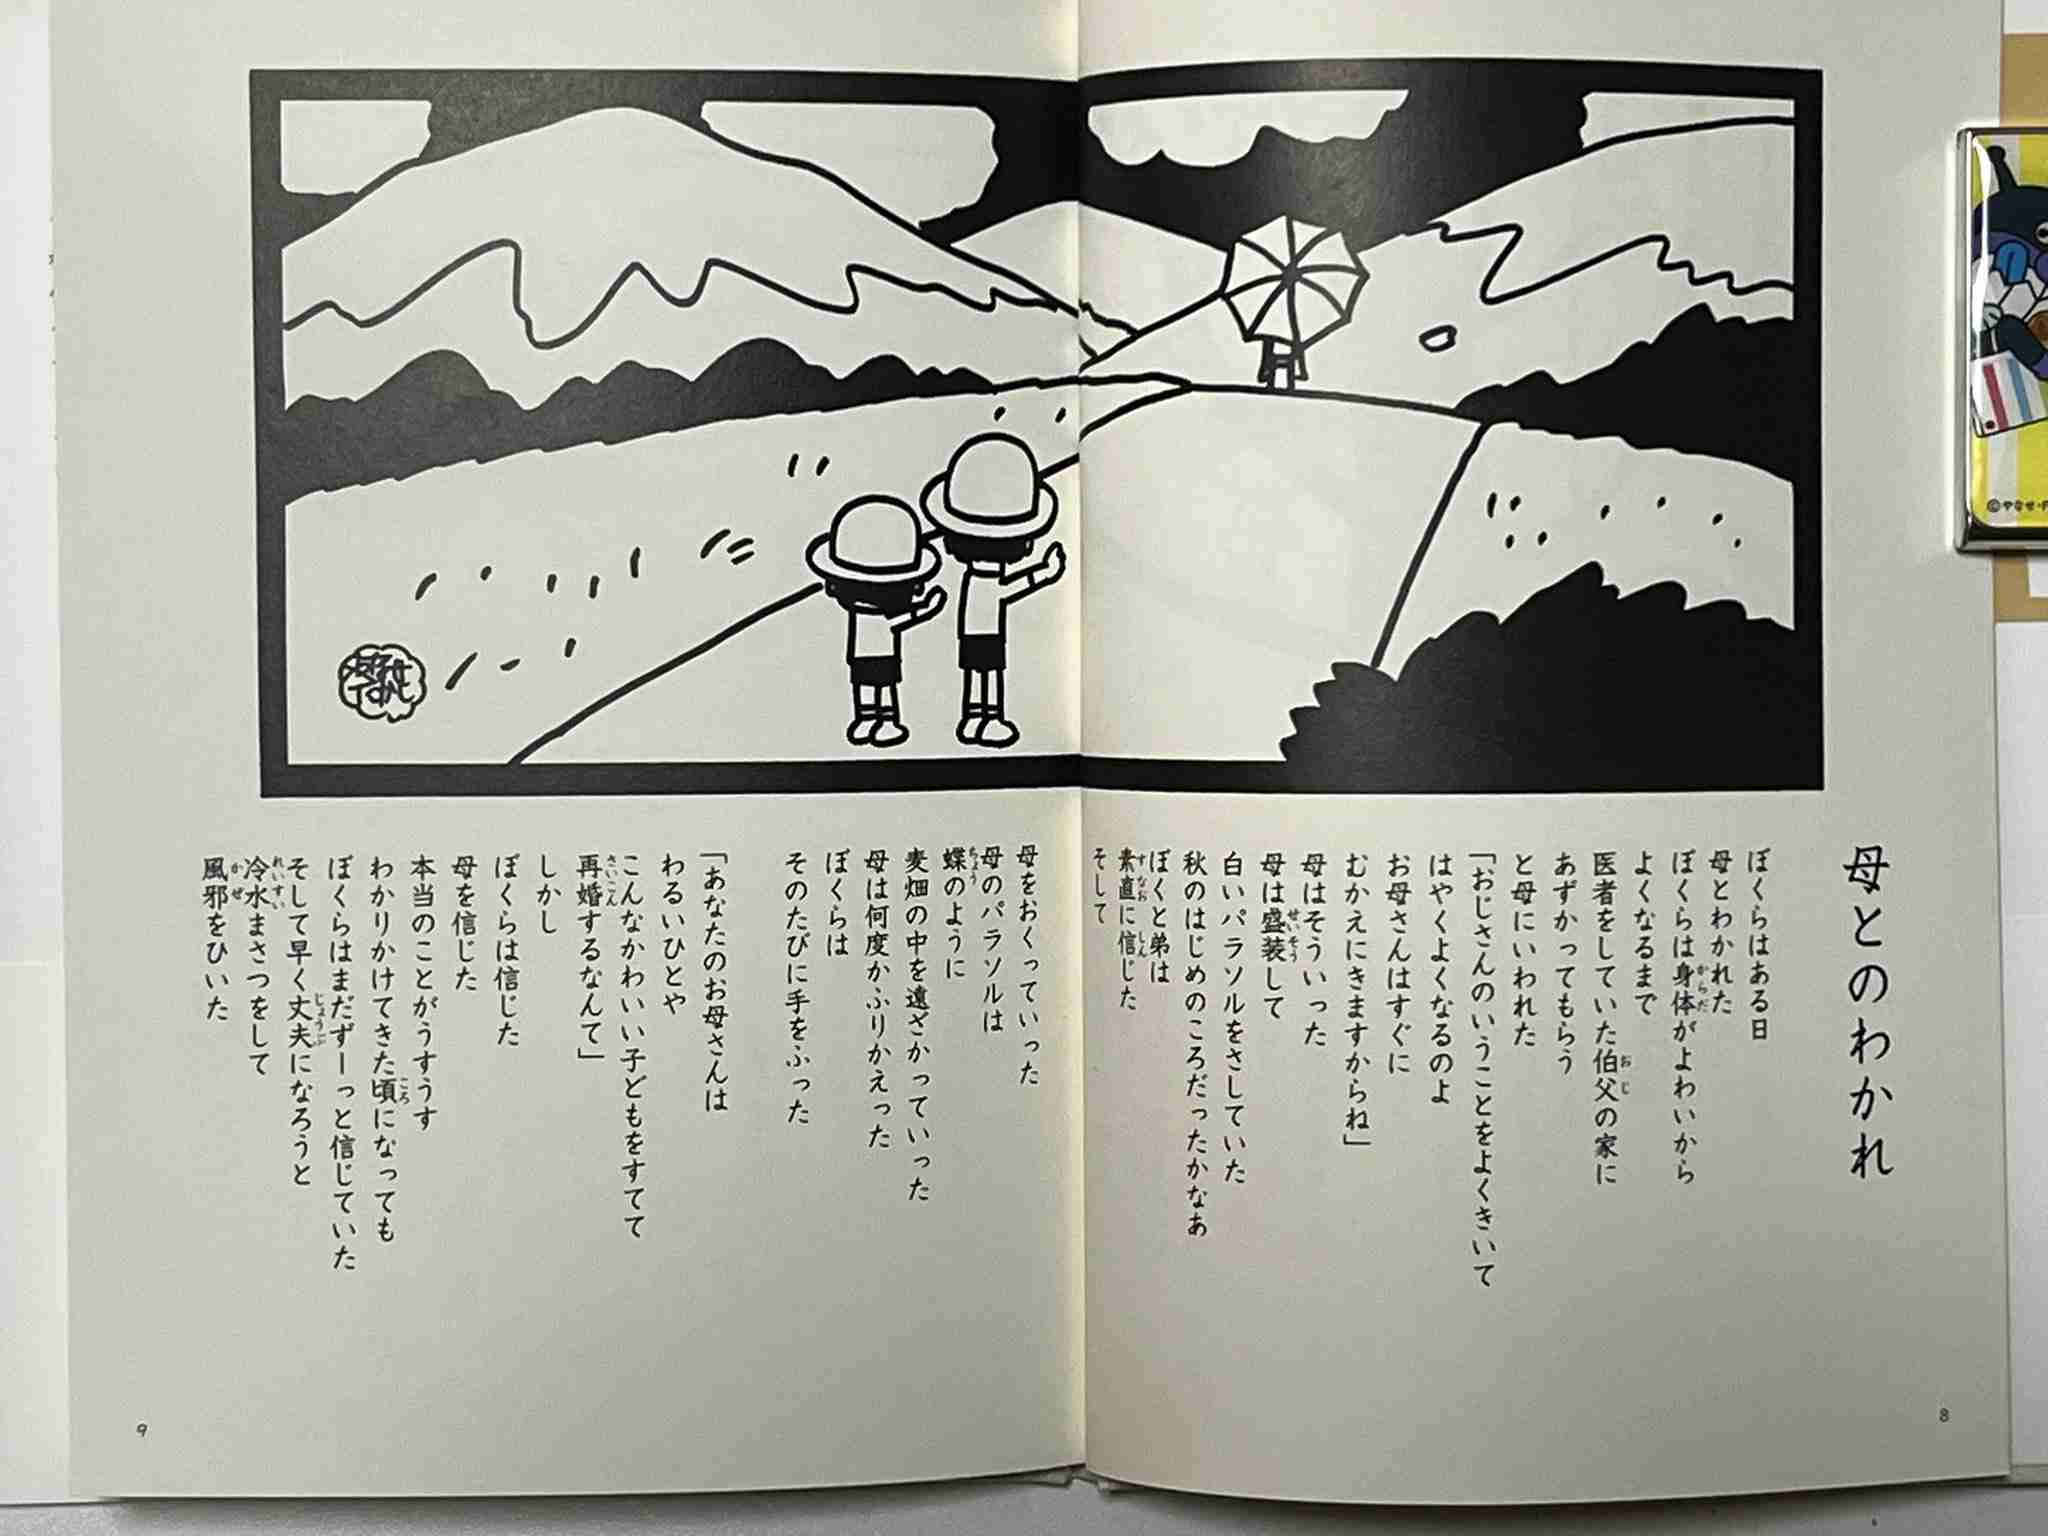 母とのわかれ
ぼくらはある日
母とわかれた
ぼくらは身体がよわいから
よくなるまで
医者をしていた伯父の家に
あずかってもらう
と母にいわれた
「おじさんのいうことをよくきいて
はやくよくなるのよ
お母さんはすぐに
むかえにきますからね」
母はそういった
母は盛装して
白いパラソルをさしていた
秋のはじめのころだったかなあ
ぼくと弟は
素直に信じた
そして
母をおくっていった
母のパラソルは
蝶のように
麦畑の中を遠ざかっていった
母は何度かふりかえった
ぼくらは
そのたびに手をふった
「あなたのお母さんは
わるいひとや
こんなかわいい子どもをすてて
再婚するなんて」
しかし
ぼくらは信じた
母を信じた
本当のことがうすうす
わかりかけてきた頃になっても
ぼくらはまだずーっと信じていた
そして早く丈夫になろうと
冷水まさつをして
風邪をひいた
8
9
やなせ
たかし
©やなせ・F